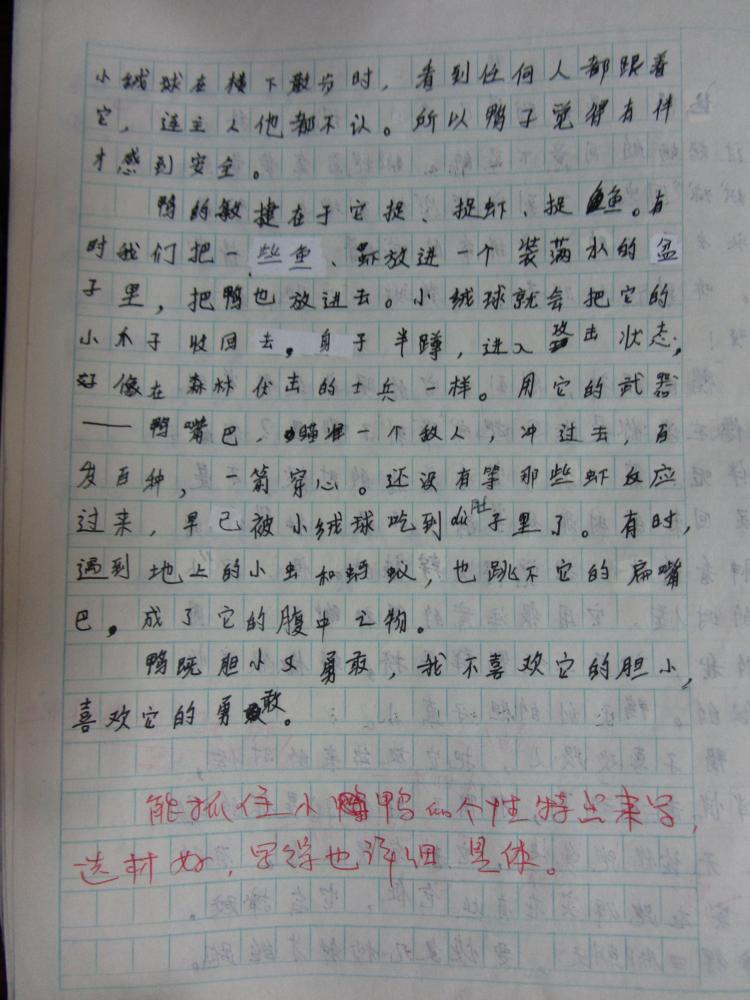 小绒球在楼下散步时，看到任何人都跟着
它，连主人他都不认。所以鸭子觉得有伴
才感到安全。
鸭的敏捷在于它捉、捉虾、捉鱼。有
时我们把一些鱼、虾放进一个装满水的盆
子里，把鸭也放进去。小绒球就会把它的
小爪子收回去，身子半蹲，进入攻击状态，
好像在森林伏击的士兵一样。用它的武器
——鸭嘴巴，瞄准一个敌人，冲过去，百
发百种，一箭穿心。还没有等那些虾反应
过来，早已被小绒球吃到肚子里了。有时，
遇到地上的小虫和蚂蚁，也跳不它的扁嘴
巴。成了它的腹中之物。
鸭既胆小又勇敢，我不喜欢它的胆小，
喜欢它的勇敢。
能抓住小鸭的个性特点来写，
选材好，写得也详细具体。